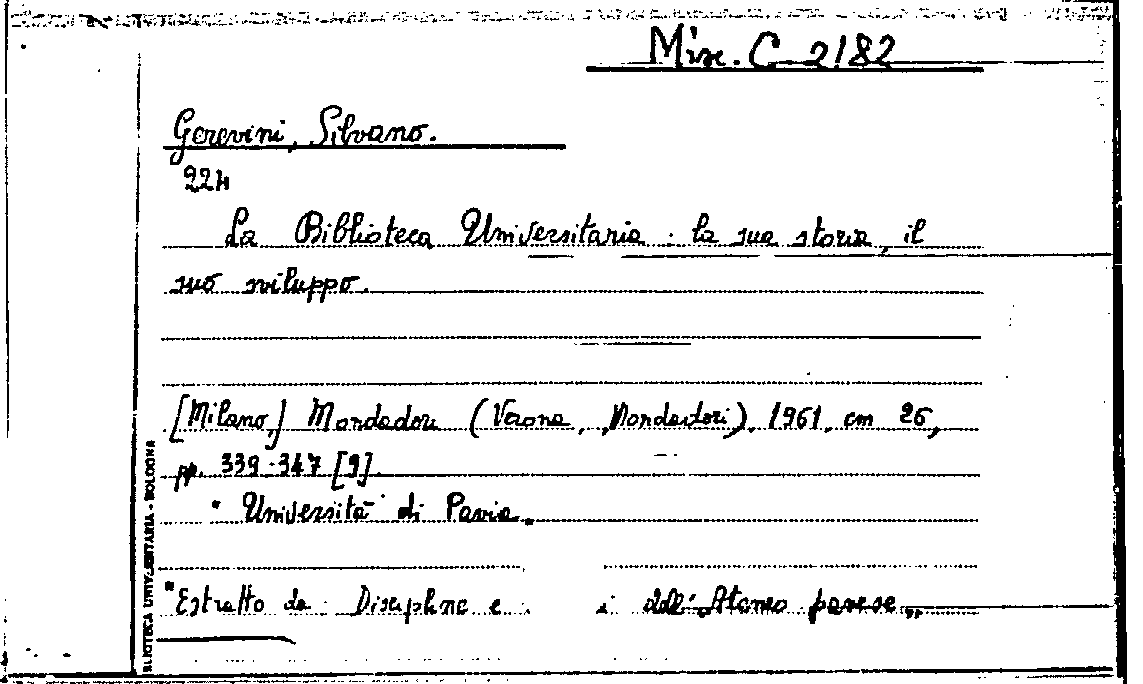 Misc. C 2182
Gerevini, Silvano.
224
La Biblioteca Universitaria: la sua storia, il
suo sviluppo.
[Milano,] Mondadori (Verona, Mondadori), 1961, cm 26,
pp. 339-347 [9].
"Università di Pavia"
"Estratto da: Discipline e i dell'Ateneo pavese„
BLIOTECA UNIVERSITARIA - BOLOGNA